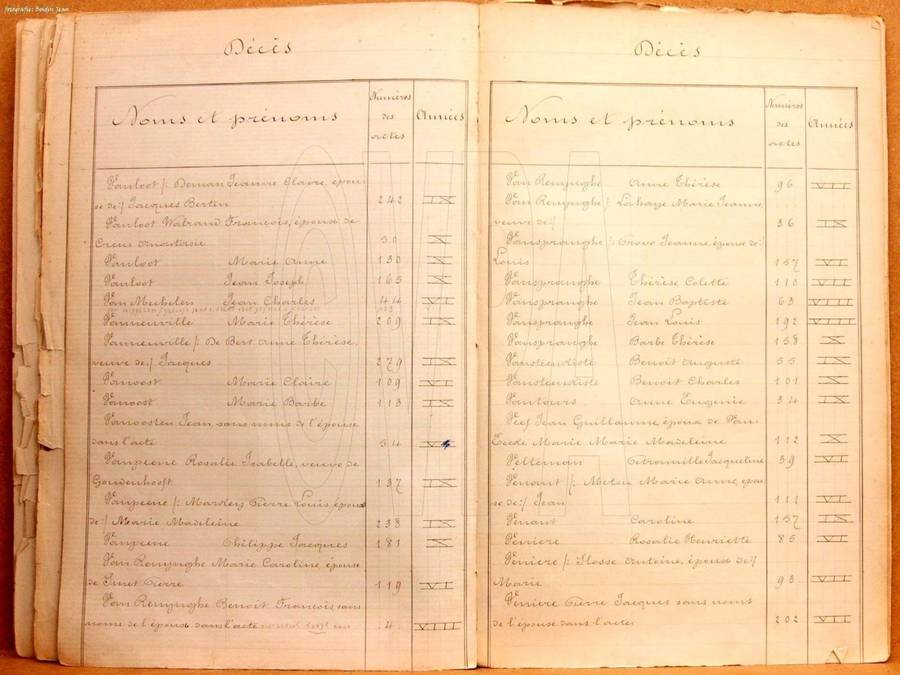 fotografie: Boudin Jean
Décès
Noms et prénoms
Numéros des actes
Années
Vanloot /: Deman Jeanne Claire, épou-
se de :/ Jacques Bertin 242 IX
Vanloot Walrand François, époux de
Creus Anastasie 50 X
Vanloot Marie Anne 130 X
Vanloot Jean Joseph 165 X
Van Mechelen Jean Charles 44 VI
Vanneuville Marie Thérèse 209 IX
Vanneuville /: De Bert Anne Thérèse,
veuve de :/ Jacques 279 IX
Vanoost Marie Claire 109 VI
Vanoost Marie Barbe 113 IX
Vanoosten Jean, sans noms de l'épouse
dans l'acte 54
Vanpeene Rosalie Isabelle, veuve de
137 IX
Vanpeene /: Pierre Louis, époux
de :/ Marie Madeleine 238 IX
Vanpeene Philippe Jacques 181 X
Van Rempughe Marie Caroline, épouse
de Smet Pierre 119 VI
Van Rempughe Benoit François, sans
noms de l'épouse dans l'acte 4 VIII
Décès
Noms et prénoms
Numéros des actes
Années
Van Rempughe Anne Thérèse 96 VII
Van Rempughe /: Lahaye Marie Jeanne,
veuve de :/ 36 IX
Vanspranghe /: Provo Jeanne, épouse de :/
Louis 157 VI
Vanspranghe Thérèse Colette 110 VII
Vanspranghe Jean Baptiste 63 VIII
Vanspranghe Jean Louis 192 VIII
Vanspranghe Barbe Thérèse 158 X
Vansteenkiste Benoit Auguste 55 IX
Vansteenkiste Benoit Charles 101 X
Vantours Anne Eugenie 34 IX
Veef Jean Guillaume, époux de Van
Eecke Marie Marie Madeleine 112 X
Vellemans Pétronille Jacqueline 39 VI
Venant /: Marie Anne, épou-
se de :/ Jean 111 VI
Venant Caroline 157 IX
Veniere Rosalie Henriette 85 VI
Veniere /: Antoine, époux de :/
Marie 93 VII
Veniere Pierre Jacques sans noms
de l'épouse dans l'acte 202 VII